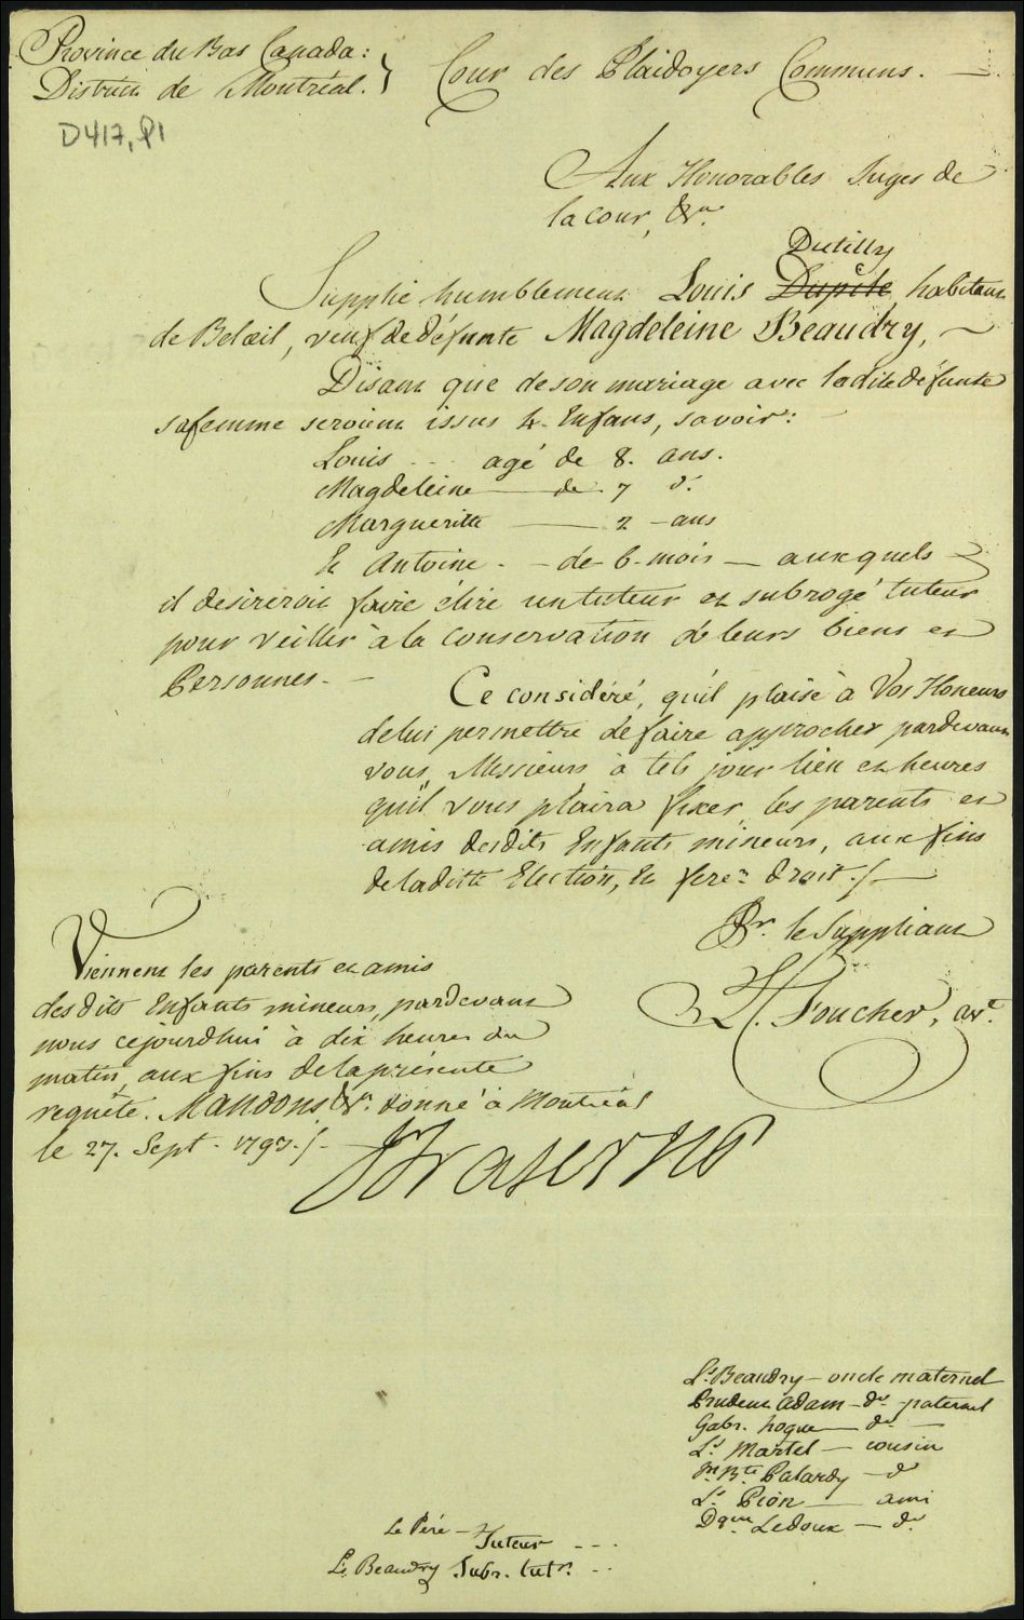 Province du Bas Canada:
District de Montréal. } Cour des Plaidoyers Communs.
D417, P1
Aux Honorables Juges de
la Cour, &a.
Dutilly
Supplie humblement Louis Dupile habitant
de Belœil, veuf de défunte Magdeleine Beaudry,
Disant que de son mariage avec ladite défunte
sa femme seroient issus 4. Enfans, savoir:
Louis agé de 8. ans.
Magdeleine de 7 d°.
Margueritte 2 ans
Et Antoine - de 6 mois — auxquels
il desireroit faire élire un tuteur et subrogé tuteur
pour veiller à la Conservation de leurs biens et
Personnes.
Ce considéré, qu'il plaise à Vos Honeurs
de lui permettre de faire approcher pardevant
vous, Messieurs à tels jour lieu et heures
qu'il vous plaira fixer, les parents et
amis desdits Enfants mineurs, aux fins
de laditte Election, Et ferez droit./.
Pr. le Suppliant
L. Foucher, av.
Viennent les parents et amis
desdits Enfants mineurs, pardevant
nous cejourdhui à dix heures du
matin, aux fins de la présente
requête. Mandons &a. donné à Montréal
le 27. Sept. 1793./.
J Fraser
Ls. Beaudry — oncle maternel
Prudent Adam — do. paternel
Gabr. hogue — do.
Ls. Martel — cousin
Jn. Bte. Palardy — do
Ls. Pion — ami
Dque Ledoux — do.
Le Pére — Tuteur
Ls. Beaudry Subr. tutr.